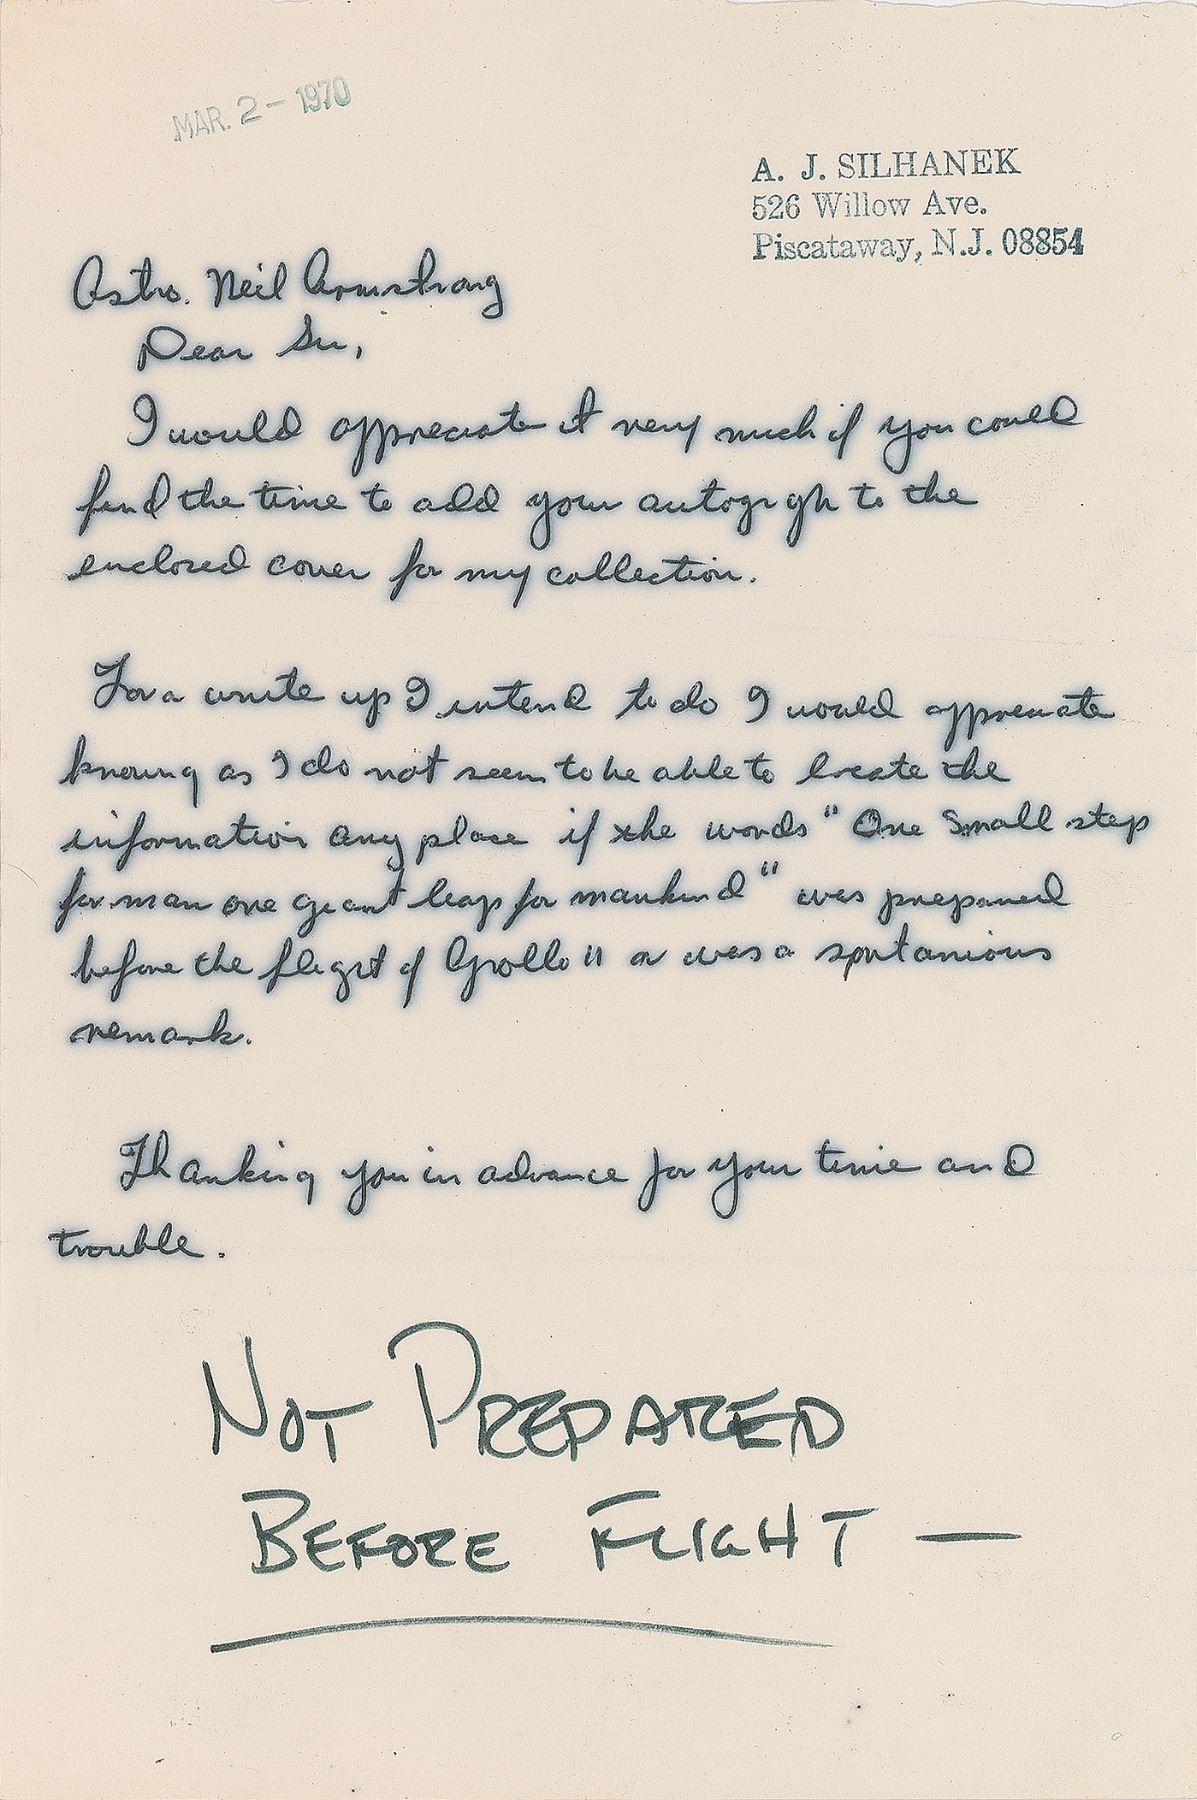 MAR. 2 - 1970
A. J. SILHANEK
526 Willow Ave.
Piscataway, N.J. 08854
Astro. Neil Armstrong
Dear Sir,
I would appreciate it very much if you could
find the time to add your autogrgh to the
enclosed cover for my collection.
For a write up I intend to do I would appreciate
knowing as I do not seem to be able to locate the
information any place if the words "One Small step
for man one giant leap for mankind" was prepared
before the fleight of Apollo 11 or was a spontanious
remark.
Thanking you in advance for your time and
trouble.
NOT PREPARED
BEFORE FLIGHT —